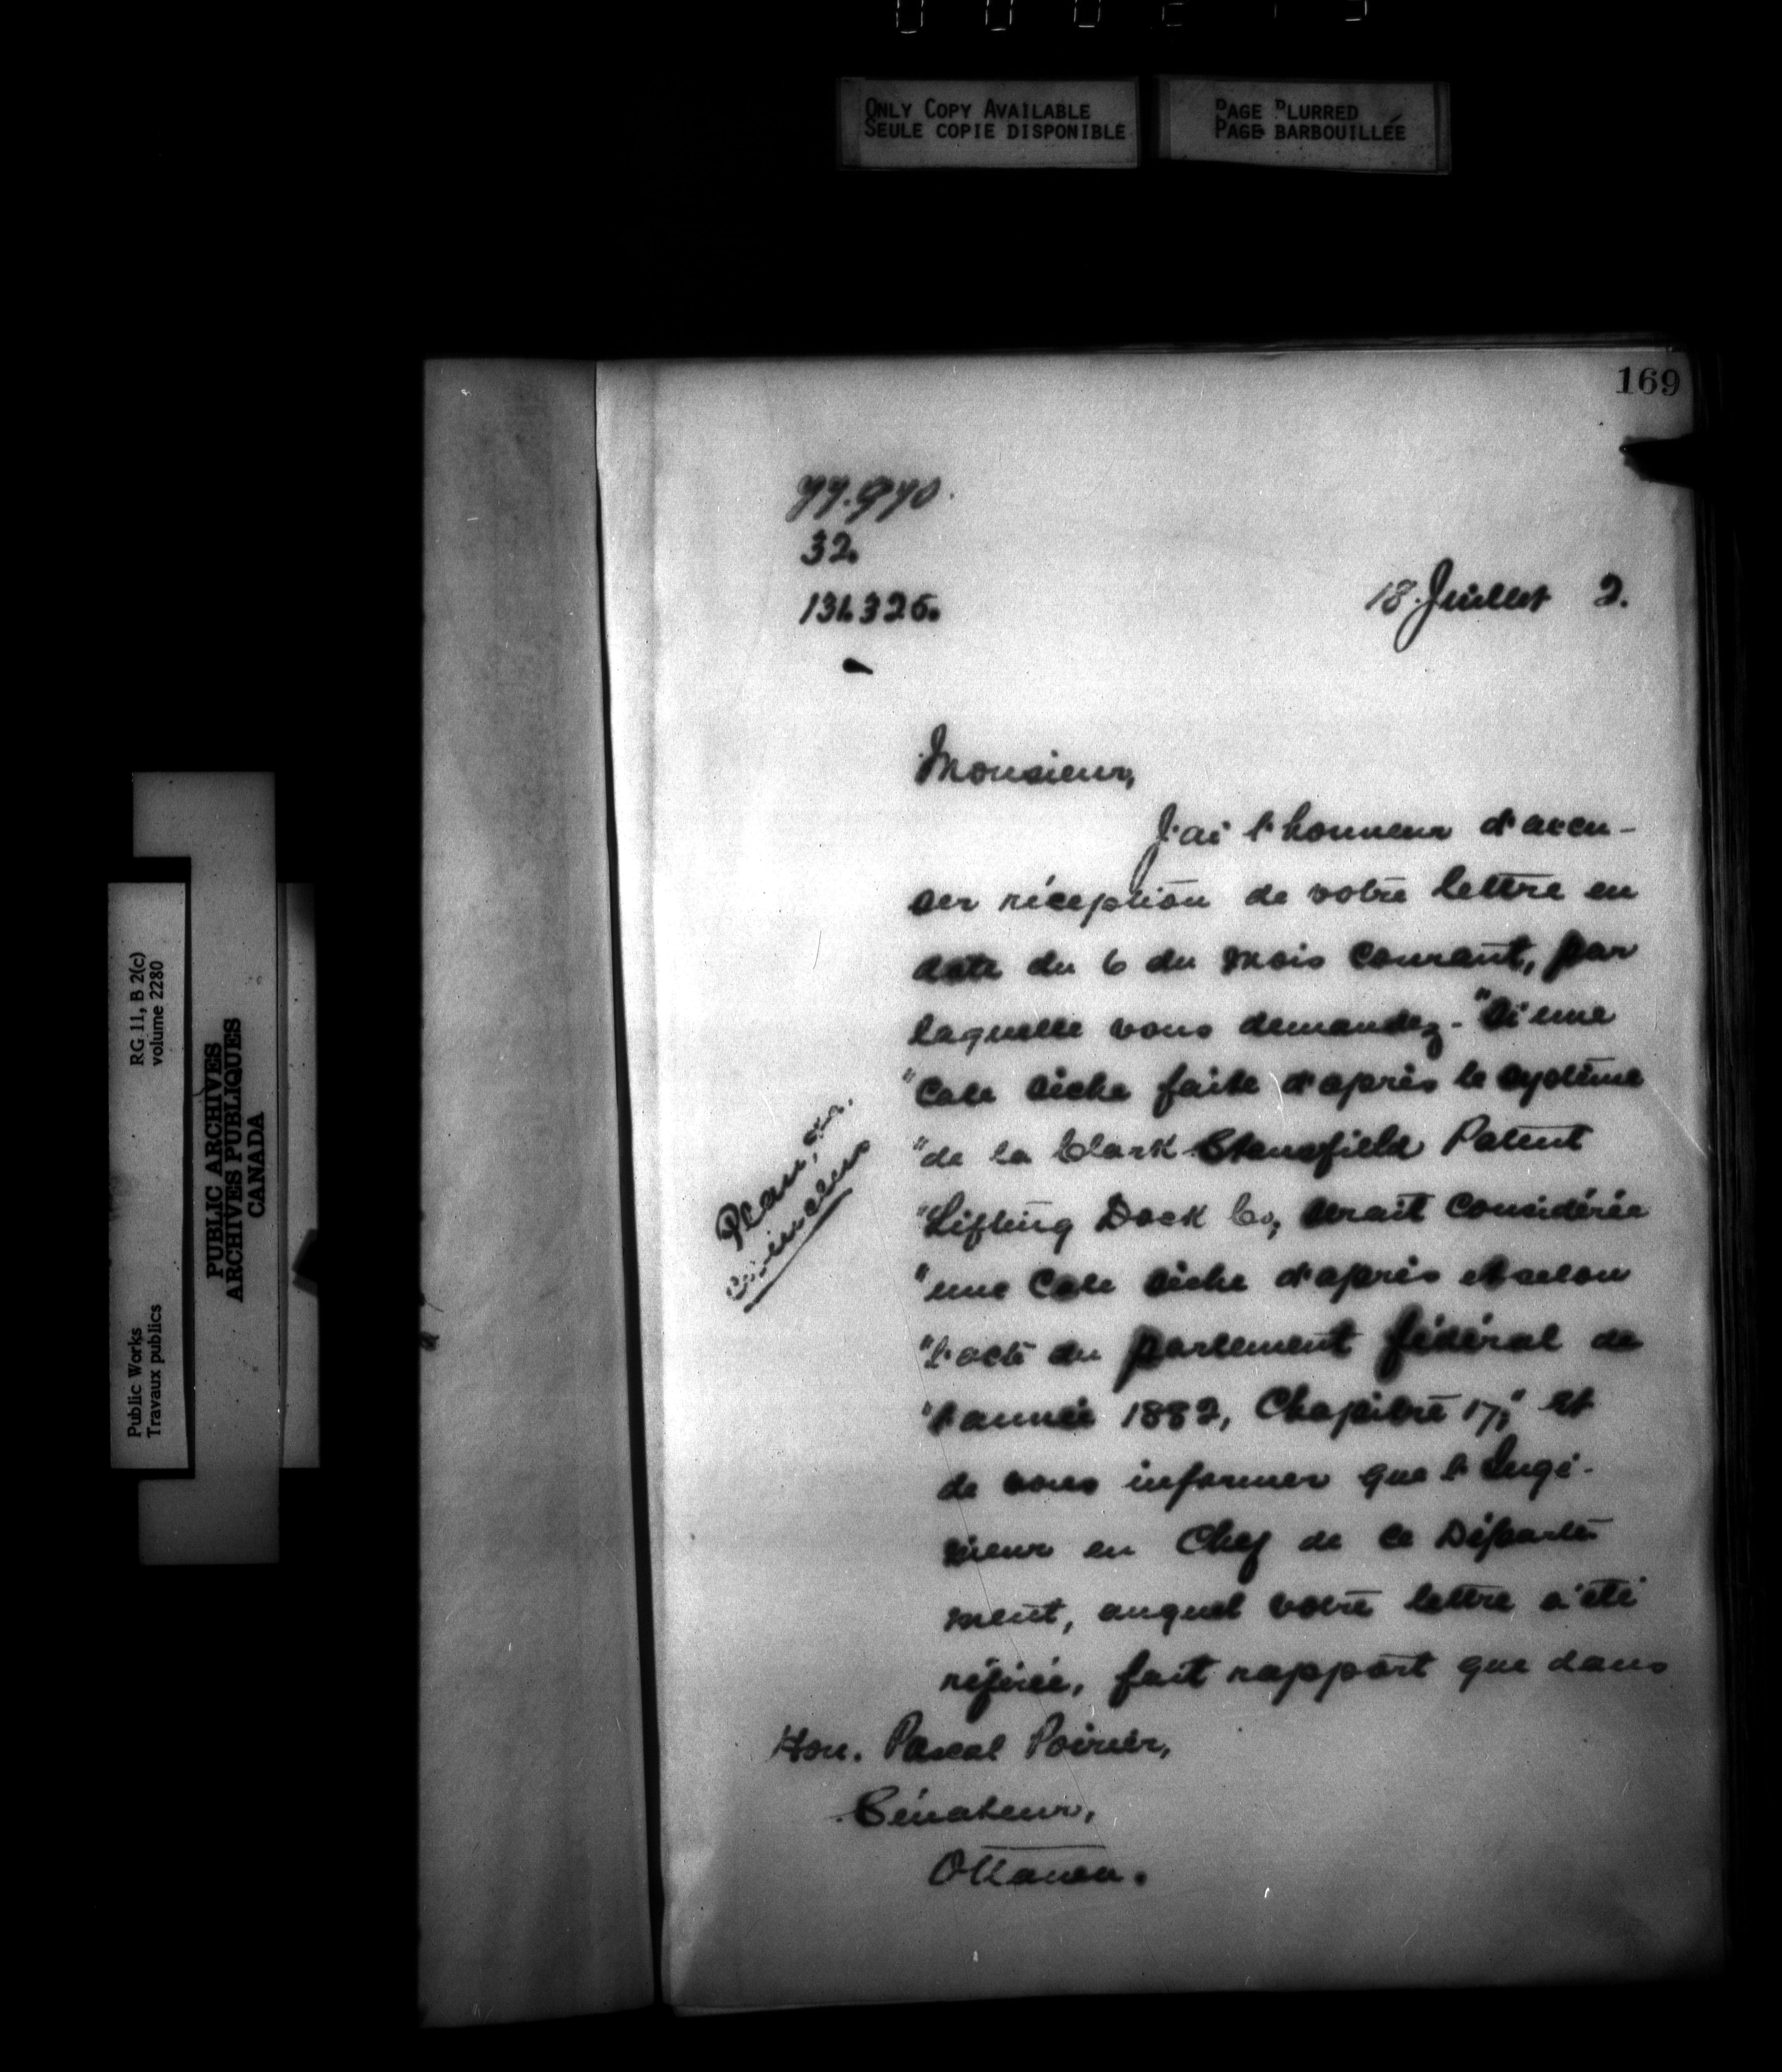 ONLY COPY AVAILABLE
SEULE COPIE DISPONIBLE
PAGE BLURRED
PAGE BARBOUILLÉE
RG 11, B 2(c)
volume 2280
PUBLIC ARCHIVES
ARCHIVES PUBLIQUES
CANADA
Public Works
Travaux publics
169
32.
18 Juillet 2.
Monsieur,
J'ai l'honneur d'accu-
ser réception de votre lettre en
date du 6 du mois courant, par
laquelle vous demandez - "Si une
"Cale sèche faite d'après le système
"de la Clark Stansfield Patent
"Lifting Dock Co, serait considérée
"une Cale sèche d'après et selon
"l'acte du parlement fédéral de
"l'année 1882, Chapitre 17," et
de vous informer que l'Ingé-
nieur en Chef de ce Départe-
ment, auquel votre lettre a été
référée, fait rapport que dans
Hon. Pascal Poirier,
Sénateur,
Ottawa.
Plan, &c.